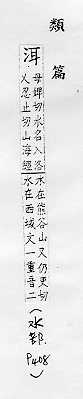 類篇
洱
母婢切水名入洛
又忍止切山海經
水在熊谷山又仍吏切
水在西域文一重音二
(水部 P408)